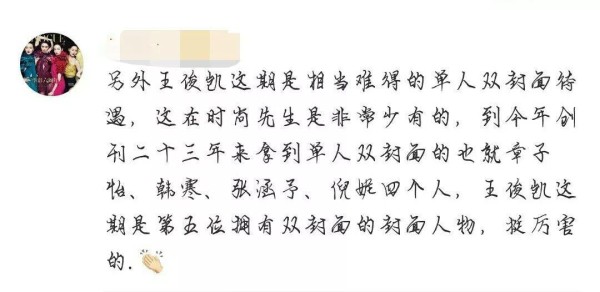 另外王俊凯这期是相当难得的单人双封面待
遇，这在时尚先生是非常少有的，到今年创
刊二十三年来拿到单人双封面的也就章子
怡、韩寒、张涵予、倪妮四个人，王俊凯这
期是第五位拥有双封面的封面人物，挺厉害
的.👏